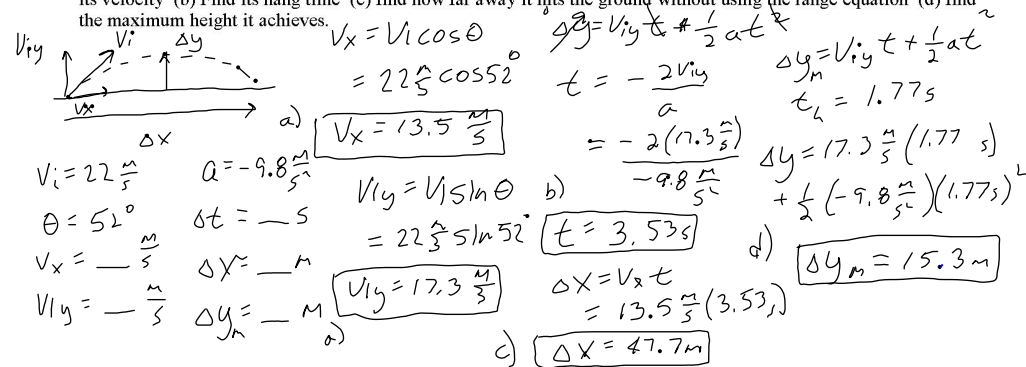 its velocity (b) Find its hang time (c) find how far away it hits the ground without using the range equation (d) find
the maximum height it achieves.
Viy
Vi
Δy
Vx
Δx
Vi = 22 m/s
θ = 52°
Vx = __ m/s
Viy = __ m/s
a = -9.8 m/s²
Δt = __ s
Δx = __ m
Δym = __ m
Vx = Vi cosθ
= 22 m/s cos52°
a) Vx = 13.5 m/s
Viy = Vi sinθ
= 22 m/s sin 52°
Viy = 17.3 m/s
a)
Δy = Viy t + 1/2 at²
t = - 2Viy/a
= - 2(17.3 m/s)/-9.8 m/s²
b) t = 3.53s
Δx = Vx t
= 13.5 m/s (3.53s)
c) Δx = 47.7m
Δym = Viy t + 1/2 at²
th = 1.77s
Δy = 17.3 m/s (1.77 s)
+ 1/2 (-9.8 m/s²)(1.77s)²
d) Δym = 15.3m